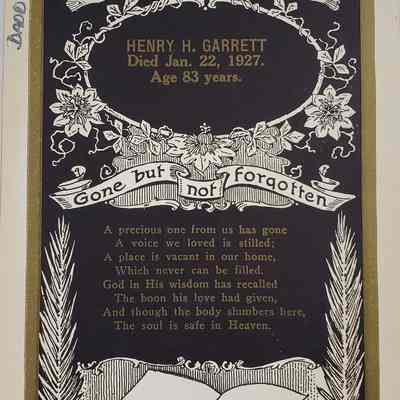 HENRY H. GARRETT
Died Jan. 22, 1927.
Age 83 years.
Gone but not forgotten
A precious one from us has gone
A voice we loved is stilled;
A place is vacant in our home,
Which never can be filled.
God in His wisdom has recalled
The boon his love had given,
And though the body slumbers here,
The soul is safe in Heaven.